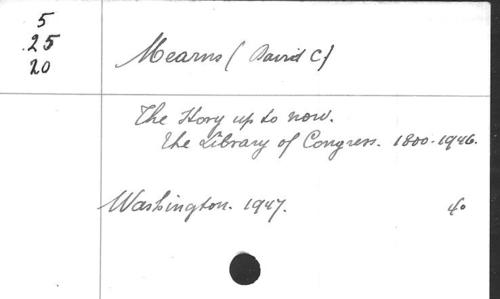 5
25
20
Mearns (David C)
The Story up to now.
The Library of Congress. 1800-1946.
Washington. 1947.
4o